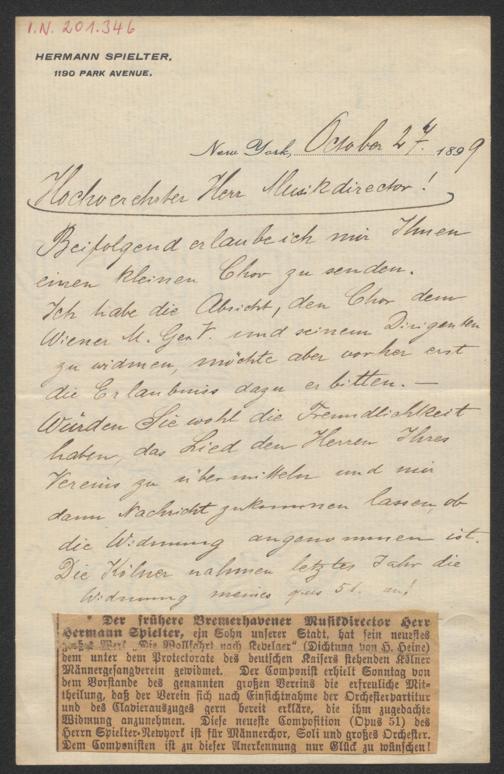 I.N. 201.346
HERMANN SPIELTER,
1190 PARK AVENUE.
New York, October 24. 1899
Hochverehrter Herr Musikdirector!
Beifolgend erlaube ich mir Ihnen
einen kleinen Chor zu senden.
Ich habe die Absicht, den Chor dem
Wiener M. Ges. V. und seinem Dirigenten
zu widmen, möchte aber vorher erst
die Erlaubniss dazu erbitten. —
Würden Sie wohl die Freundlichkeit
haben, das Lied den Herren Ihres
Vereins zu übermitteln und mir
dann Nachricht zukommen lassen, ob
die Widmung angenommen ist.
Die Kölner nahmen letztes Jahr die
Widmung meines opus 51. an!
* Der frühere Bremerhavener Musikdirector Herr
Hermann Spielter, ein Sohn unserer Stadt, hat sein neuestes
Werk "Die Wallfahrt nach Kevelaer" (Dichtung von H. Heine)
dem unter dem Protectorate des deutschen Kaisers stehenden Kölner
Männergesangverein gewidmet. Der Componist erhielt Sonntag von
dem Vorstande des genannten großen Vereins die erfreuliche Mit-
theilung, daß der Verein sich nach Einsichtnahme der Orchesterpartitur
und des Clavierauszuges gern bereit erkläre, die ihm zugedachte
Widmung anzunehmen. Diese neueste Composition (Opus 51) des
Herrn Spielter-Newyork ist für Männerchor, Soli und großes Orchester.
Dem Componisten ist zu dieser Anerkennung nur Glück zu wünschen!